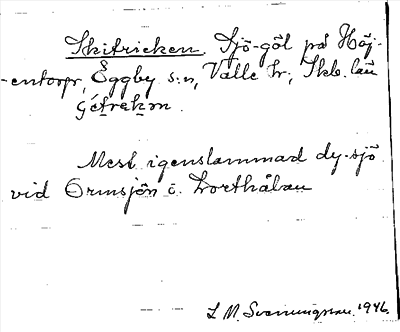 Skitricken Sjö-göl på Höj-
-entorp, Eggby s:n, Valle hr; Skb. län
Mest igenslammad dy-sjö
vid Ormsjön i
L M. Svanungsson. 1946.